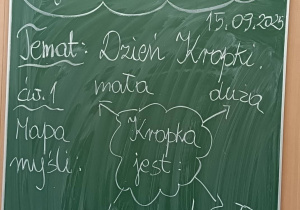 15.09.2025
Temat: Dzień Kropki.
ćw. 1 mała duża
Mapa Kropka
myśli: jest: